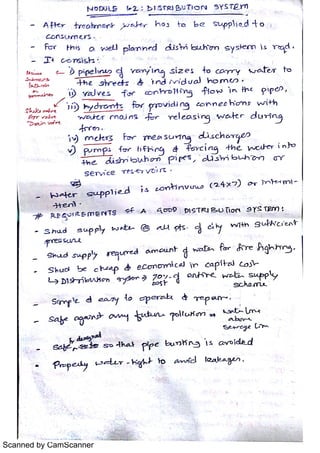 MODULE 6.2: DISTRIBUTION SYSTEM
- After treatment water has to be supplied to
consumers.
- For this a well planned distribution system is reqd.
- It consists:
i) pipelines of varying sizes to carry water to
the streets & individual homes.
ii) valves for controlling flow in the pipes,
Sluice valve
Air valve
Drain valve
iii) hydrants for providing connections with
water mains for releasing water during
fire.
iv) meters for measuring discharges
v) pumps for lifting & forcing the water into
the distribution pipes, distribution or
service reservoirs.
- Water supplied is continuous (24x7) or intermi-
ttent.
# REQUIREMENTS OF A GOOD DISTRIBUTION SYSTEM:
- Shud supply water @ all pts. of city with sufficient
pressure
- Shud supply required amount of water for fire fighting.
- Shud be cheap & economical in capital cost
↳ Distribution system → 70% of entire water supply
cost scheme
- Simple & easy to operate & repair.
- Safe against any future pollution → water line
above
sewage line
- designed so that pipe bursting is avoided
- Properly water-tight to avoid leakages.
Scanned by CamScanner